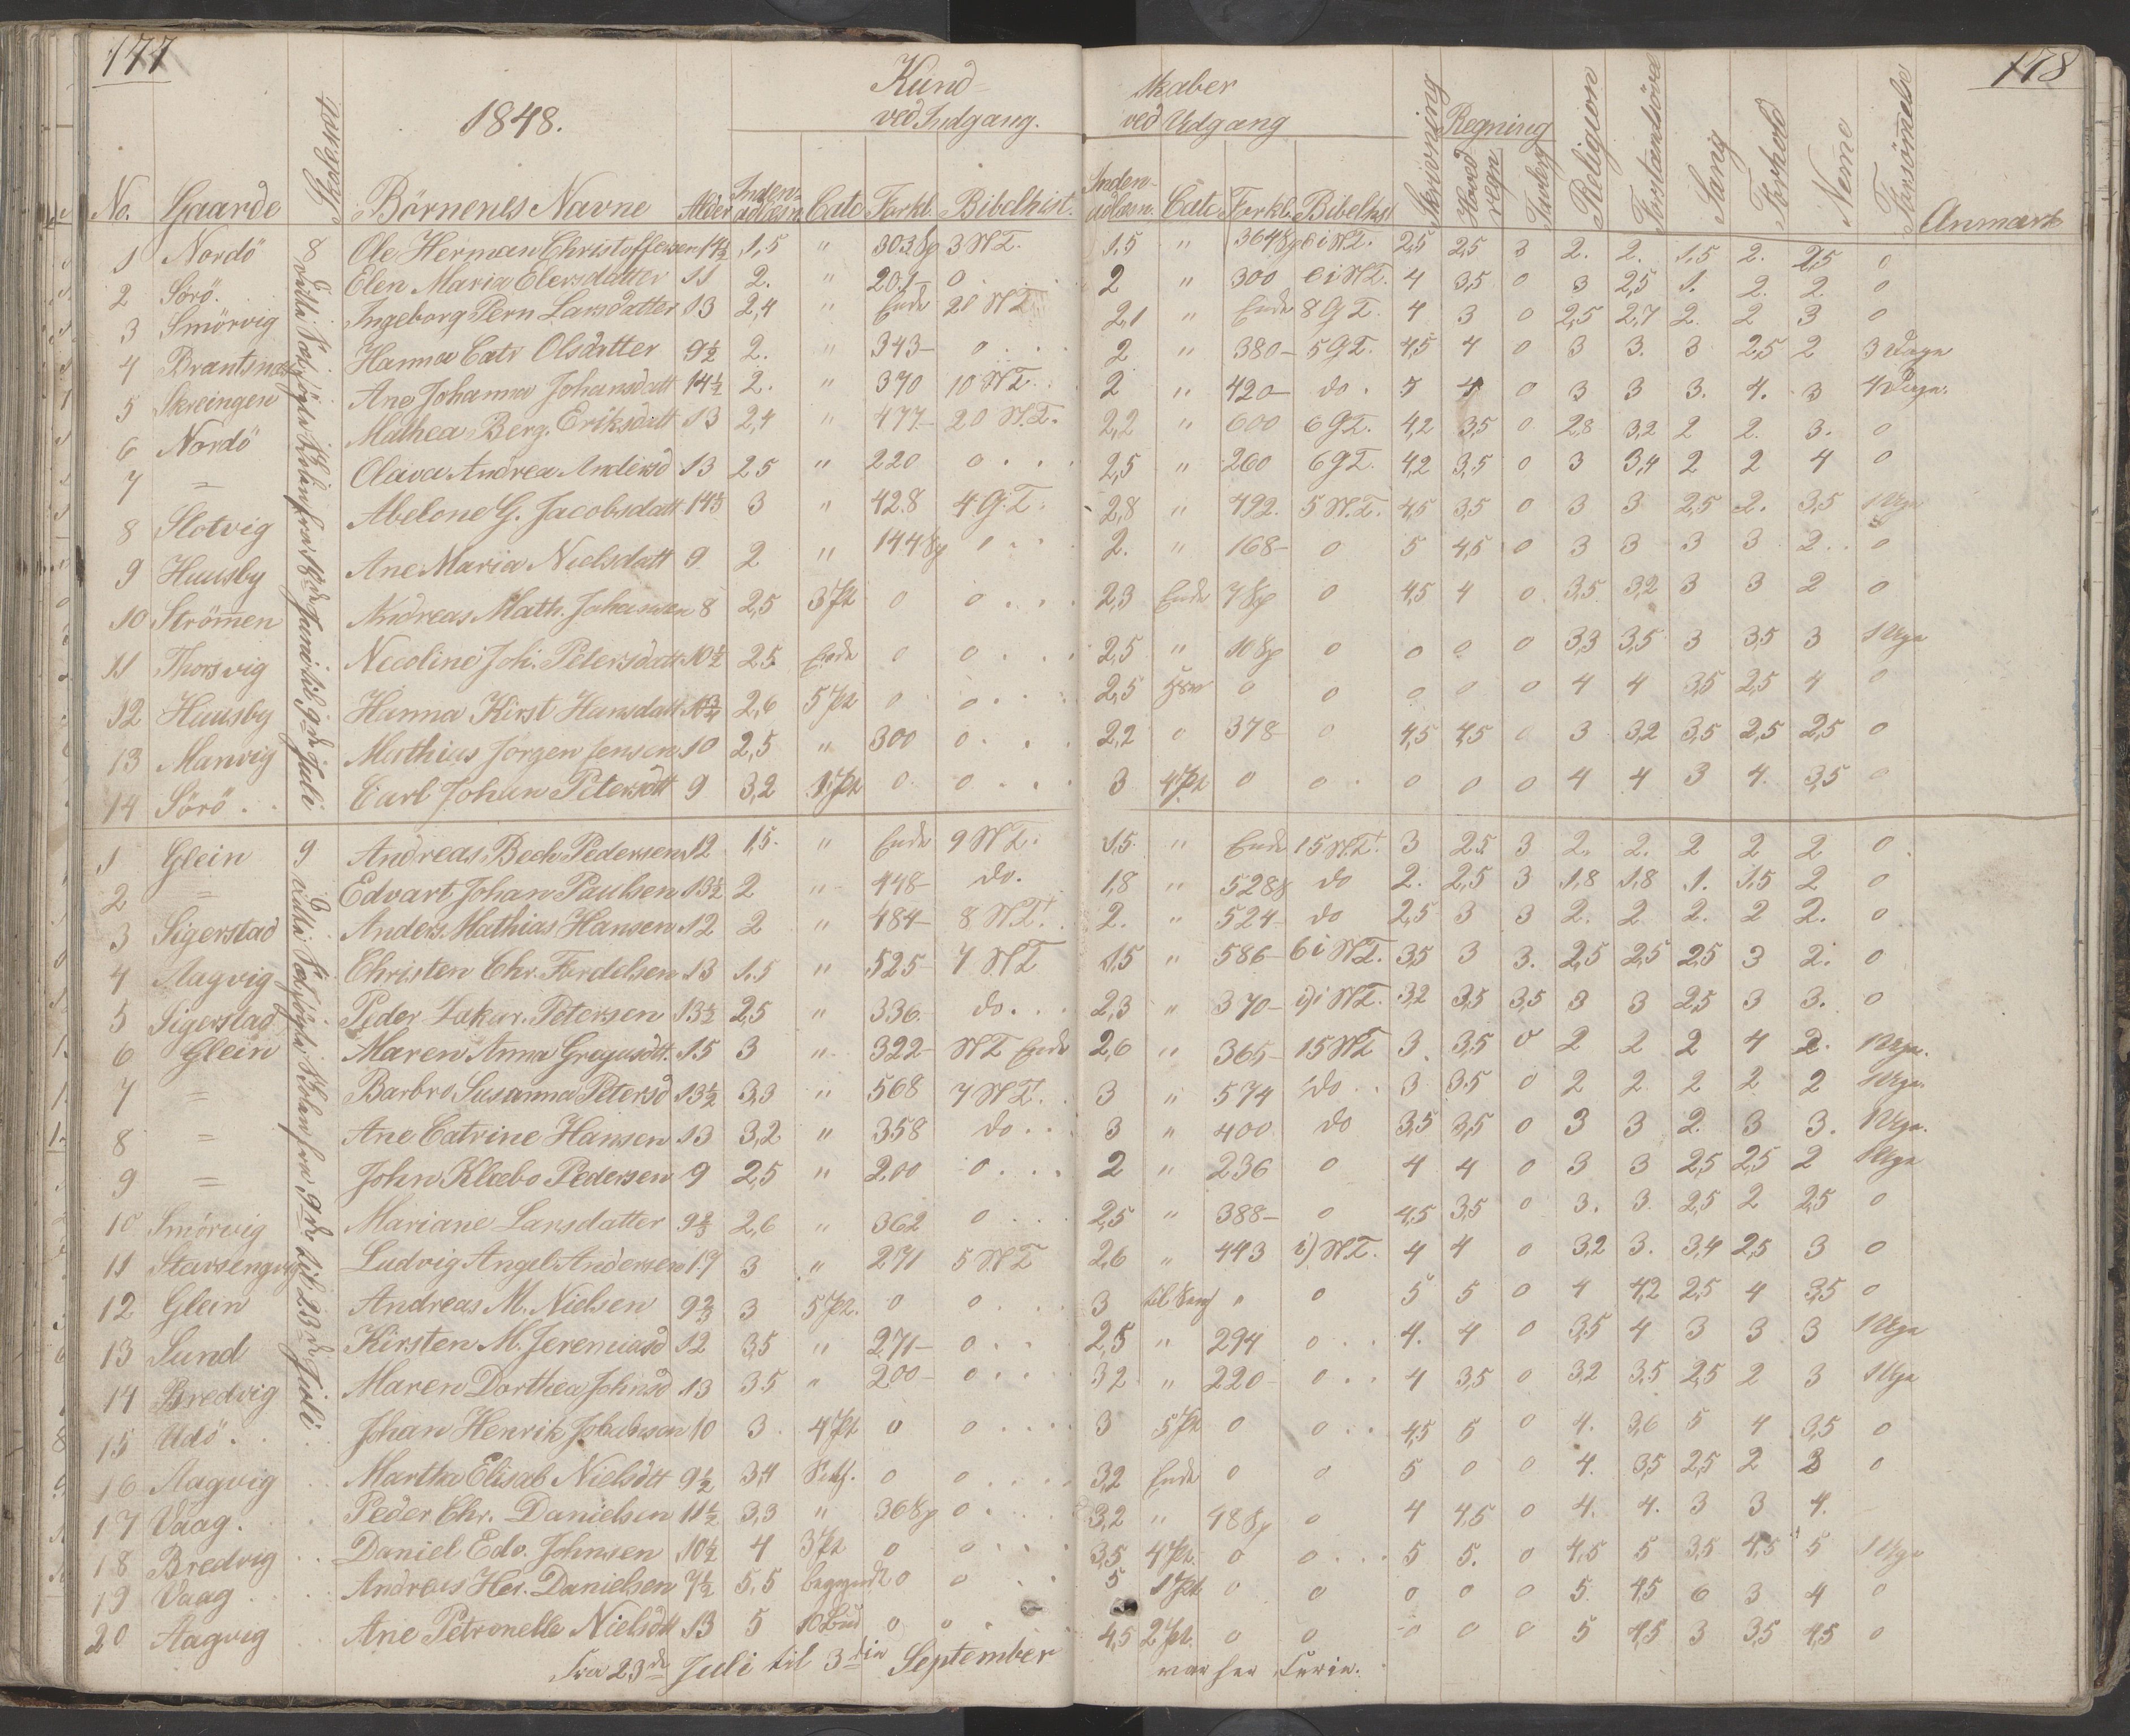 177
178
Kund-
skaber
1848.
ved Indgang.
ved Udgang
Regning
No. Gaarde Börnenes Navne Alder Inden-adlæsn Catc Forkl. Bibelhist. Inden-adlæsn. Catc Forkl. Bibelhist Skrivning Hovedregn Religion Sang Forhold Nemme Anmærk
1 Nordö Ole Herman Christoffersen 14½ 1,5 " 303 Sp 3 N.T. 1.5 " 364 Sp 6 i N.T. 2,5 2,5 3 2. 2. 1.5 2. 2,5 0
2 Sörö. Elen Maria Elersdatter 11 2. " 201- 0 2 " 300 6 i N.T. 4 3,5 0 3 2,5 1. 2. 2. 0
3 Smörvig Ingeborg Pern Larsdatter 13 2,4 " Ende 20 N.T. 2,1 " Ende 8 G.T. 4 3 0 2,5 2,7 2. 2 3 0
4 Brantsnæs Hanna Catr Olsdatter 9½ 2. " 343- 0 2 " 380- 5 G.T. 4,5 4 0 3 3. 3 2,5 2 3 Dage
5 Skreingen Ane Johanna Johansdatt 14½ 2. " 370 10 N.T. 2 " 420- do. 5 4 0 3 3 3. 4. 3 4 Dage.
6 Nordö Mathea Berg. Eriksdatt 13 2,4 " 477- 20 N.T. 2,2 " 600 6 G.T. 4,2 3,5 0 2,8 3,2 2 2. 3. 0
7 = Olava Andrea Andersd 13 2,5 " 220 0 2,5 " 260 6 G.T. 4,2 3,5 0 3 3,4 2 2 4 0
8 Slotvig Abelone G. Jacobsdatt 14⅓ 3 " 428 4 G.T. 2,8 " 492. 5 N.T. 4,5 3,5 0 3 3 2,5 2. 3,5 1 Uge
9 Huusby Ane Maria Nielsdatt 9 2 " 144 Sp 0 2. " 168- 0 5 4,5 0 3 3 3 3 2. 0
10 Strömen Andreas Math. Johansen 8 2,5 3 Pt 0 0 2,3 Ende 7 Sp 0 4,5 4 0 3,5 3,2 3 3 2 0
11 Thorsvig Nicoline Joh. Petersdatt 10½ 2,5 Ende 0 0 2,5 " 10 Sp 0 0 0 0 3,3 3,5 3 3,5 3 1 Uge
12 Huusby Hanna Kirst Hansdatt 2,6 5 Pt 0 0 2,5 0 0 0 0 0 4 4 3,5 2,5 4 0
13 Marvig Mathias Jörgen Jensen 10 2,5 " 300 0 2,2 0 378 0 4,5 4,5 0 3 3,2 3,5 2,5 2,5 0
14 Sörö Carl Johan Petersdtt 9 3,2 1 Pt 0 0 3 4 Pt 0 0 0 0 0 4 4 3 4. 3,5 0
8 fra 18de Juni til 9de Juli
1 Glein Andreas Bech Pedersen 12 1,5. " Ende 9 N.T. 1,5 " Ende 15 N.T. 3 2,5 3 2. 2. 2 2 2 0
2 = Edvart Johan Paulsen 13½ 2 " 448- do. 1,8 " 528 Sp do 2. 2,5 3 1,8 1,8 1. 1,5 2 0
3 Sigerstad Anders Mathias Hansen 12 2 " 484- 8 N.T. 2. " 524- do 2,5 3 3 2. 2. 2. 2 2. 0
4 Aagvig Christen Chr. Fordelsen 13 1.5 " 525- 7 N.T 1,5 " 586- 6 i N.T. 3,5 3 3. 2,5 2,5 2,5 3 2. 0
5 Sigerstad Peder Zakar. Petersen 13½ 2,5 " 336. do. 2,3 " 370- i N.T. 3,2 3,5 3,5 3 3 2,5 3 3. 0
6 Glein Maren Anna Gregusdtt. 15 3 " 322- N.T Ende 2,6 " 365- 15 N.T 3. 3,5 0 2 2 2 4 2. 1 Uge.
7 = Barbro Susanna Petersd 13½ 3,3 " 568 7 N.T. 3 " 574 do 3 3.5 0 2 2. 2 2 2 1 Uge.
8 = Ane Catrine Hansen 13 3,2 " 358 do 3 " 400 do 3,5 3,5 0 3 3 2. 3 3. 1 Uge.
9 = John Klæbo Pedersen 9 2,5 " 200 0 2 " 236 0 4 4 0 3 3 2,5 2,5 2 1 Uge
10 Smörvig Mariane Larsdatter 9⅔ 2,6 " 362 0 2,5 " 388- 0 4,5 3,5 0 3. 3. 2,5 2 2,5 0
11 Ludvig Angel Andersen 3 " 271 5 N.T 2,6 " 443 N.T. 4 4 0 3,2 3. 3,4 2,5 3 0
12 Glein Andreas M. Nielsen 9⅔ 3 5 Pt. 0 0 3 " 0 5 5 0 4 4,2 2,5 4 3,5 0
13 Sund Kirsten M. Jeremiasd 12 3,5 " 271- 0 2,5 " 294 0 4. 4 0 3,5 4 3 3 3 1 Uge
14 Bredvig Maren Dorthea Johnsd 13 3.5 " 200- 0 3,2 " 220- 0 4 3,5 0 3,2 3,5 2,5 2 3 1 Uge
15 Udö. Johan Henrik Jakobsen 10 3. 4 Pt 0 0 3 5 Pt 0 0 4,5 5 0 4. 3,6 5 4 3,5 0
16 Aagvig Martha Elisab Nielsdtt 9½ 3,4 0 0 3,2 Ende 0 0 5 0 0 4. 3,5 2,5 2 3 0
17 Vaag. Peder Chr. Danielsen 11½ 3,3 " 36 Sp 0 3,2 " 48 Sp 0 4 4,5 0 4. 4. 3 3 4.
18 Bredvig Daniel Edv. Johnsen 10½ 4 3 Pt 0 0 3,5 4 Pt. 0 0 5 5. 0 4,5 5 3,5 4,5 5 1 Uge
19 Vaag Andreas Her. Danielsen 7½ 5,5 begyndt 0 0 5 1 Pt 0 0 0 0 0 5. 4,5 6 3 4 0
20 Aagvig Ane Petronelle Nielsdtt 13 5 10 Bud 0 0 4,5 2 Pt. 0 0 0 0 0 5 4,5 3 3,5 4,5 0
9 fra 9de til 23de Juli
Fra 23de Juli til 3die September
var her Ferie.